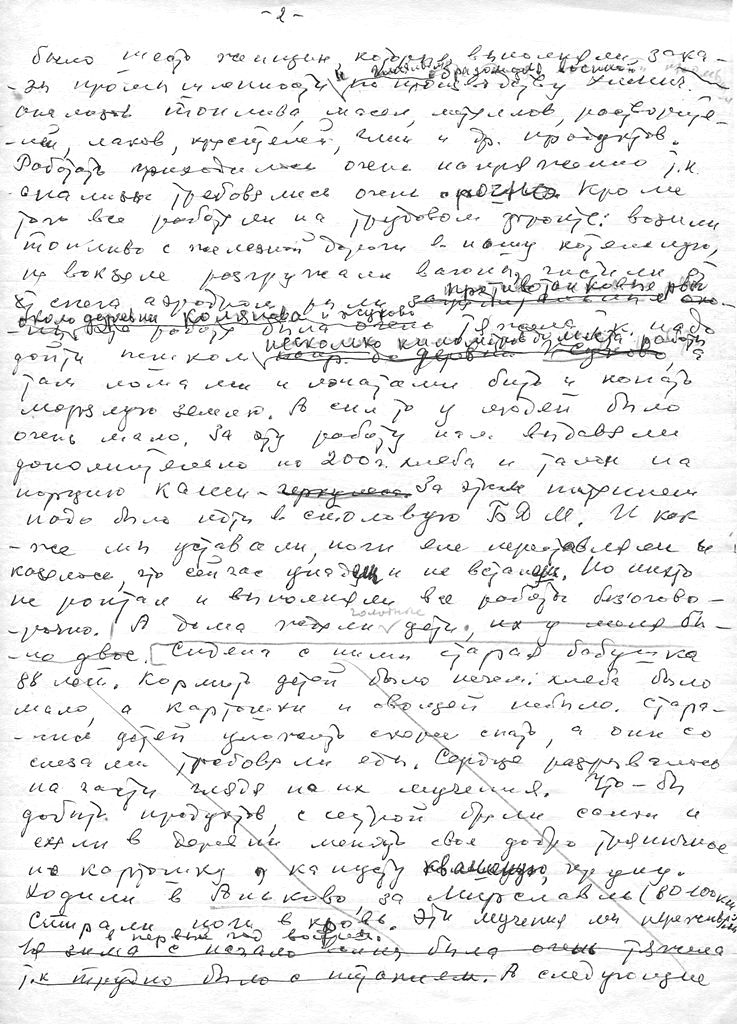 -2-
было шесть женщин, которые выполняли зака-
-зы промышленности по производству химич.
анализов топлива, масел, металлов, растворите-
-лей, лаков, красителей, глин и др. продуктов.
Работать приходилось очень напряженно т.к.
анализы требовались очень срочно. Кроме
того все работали на трудовом фронте: возили
топливо с железной дороги в нашу котельную,
на вокзале разгружали вагоны, чистили от
снега аэродром, рыли противотанковые рвы
около деревни Коляново и Жуково
эта работа была очень тяжела т.к. надо
дойти пешком несколько километров до места работы, а
там ломами и лопатами бить и копать
мерзлую землю. А сил то у людей было
очень мало. За эту работу нам выдавали
дополнительно по 200 г. хлеба и талон на
порцию каши. За этим питанием
надо было идти в столовую БДМ. И как
-же мы уставали, ноги еле переставляли и
казалось, что сейчас упадешь и не встанешь. Но никто
не роптал и выполняли все работы безогово-
-рочно. А дома ждали голодные дети, их у меня бы-
-ло двое. Сидела с ними старая бабушка
88 лет. Кормить детей было нечем: хлеба было
мало, а картошки и овощей не было. Стара-
-лись детей уложить скорее спать, а они со
слезами требовали еды. Сердце разрывалось
на части глядя на их мучения. Что-бы
добыть продуктов, с сестрой брали санки и
ехали в деревни менять свое добро тряпичное
на картошку, капусту квашеную, крупу.
Ходили в Аньково, за Мирславль (80-100 км
Стирали ноги в кровь. Эти мучения мы переживали
в первый год войны.
зима с начала была очень тяжела
т.к. трудно было с питанием. В следующие